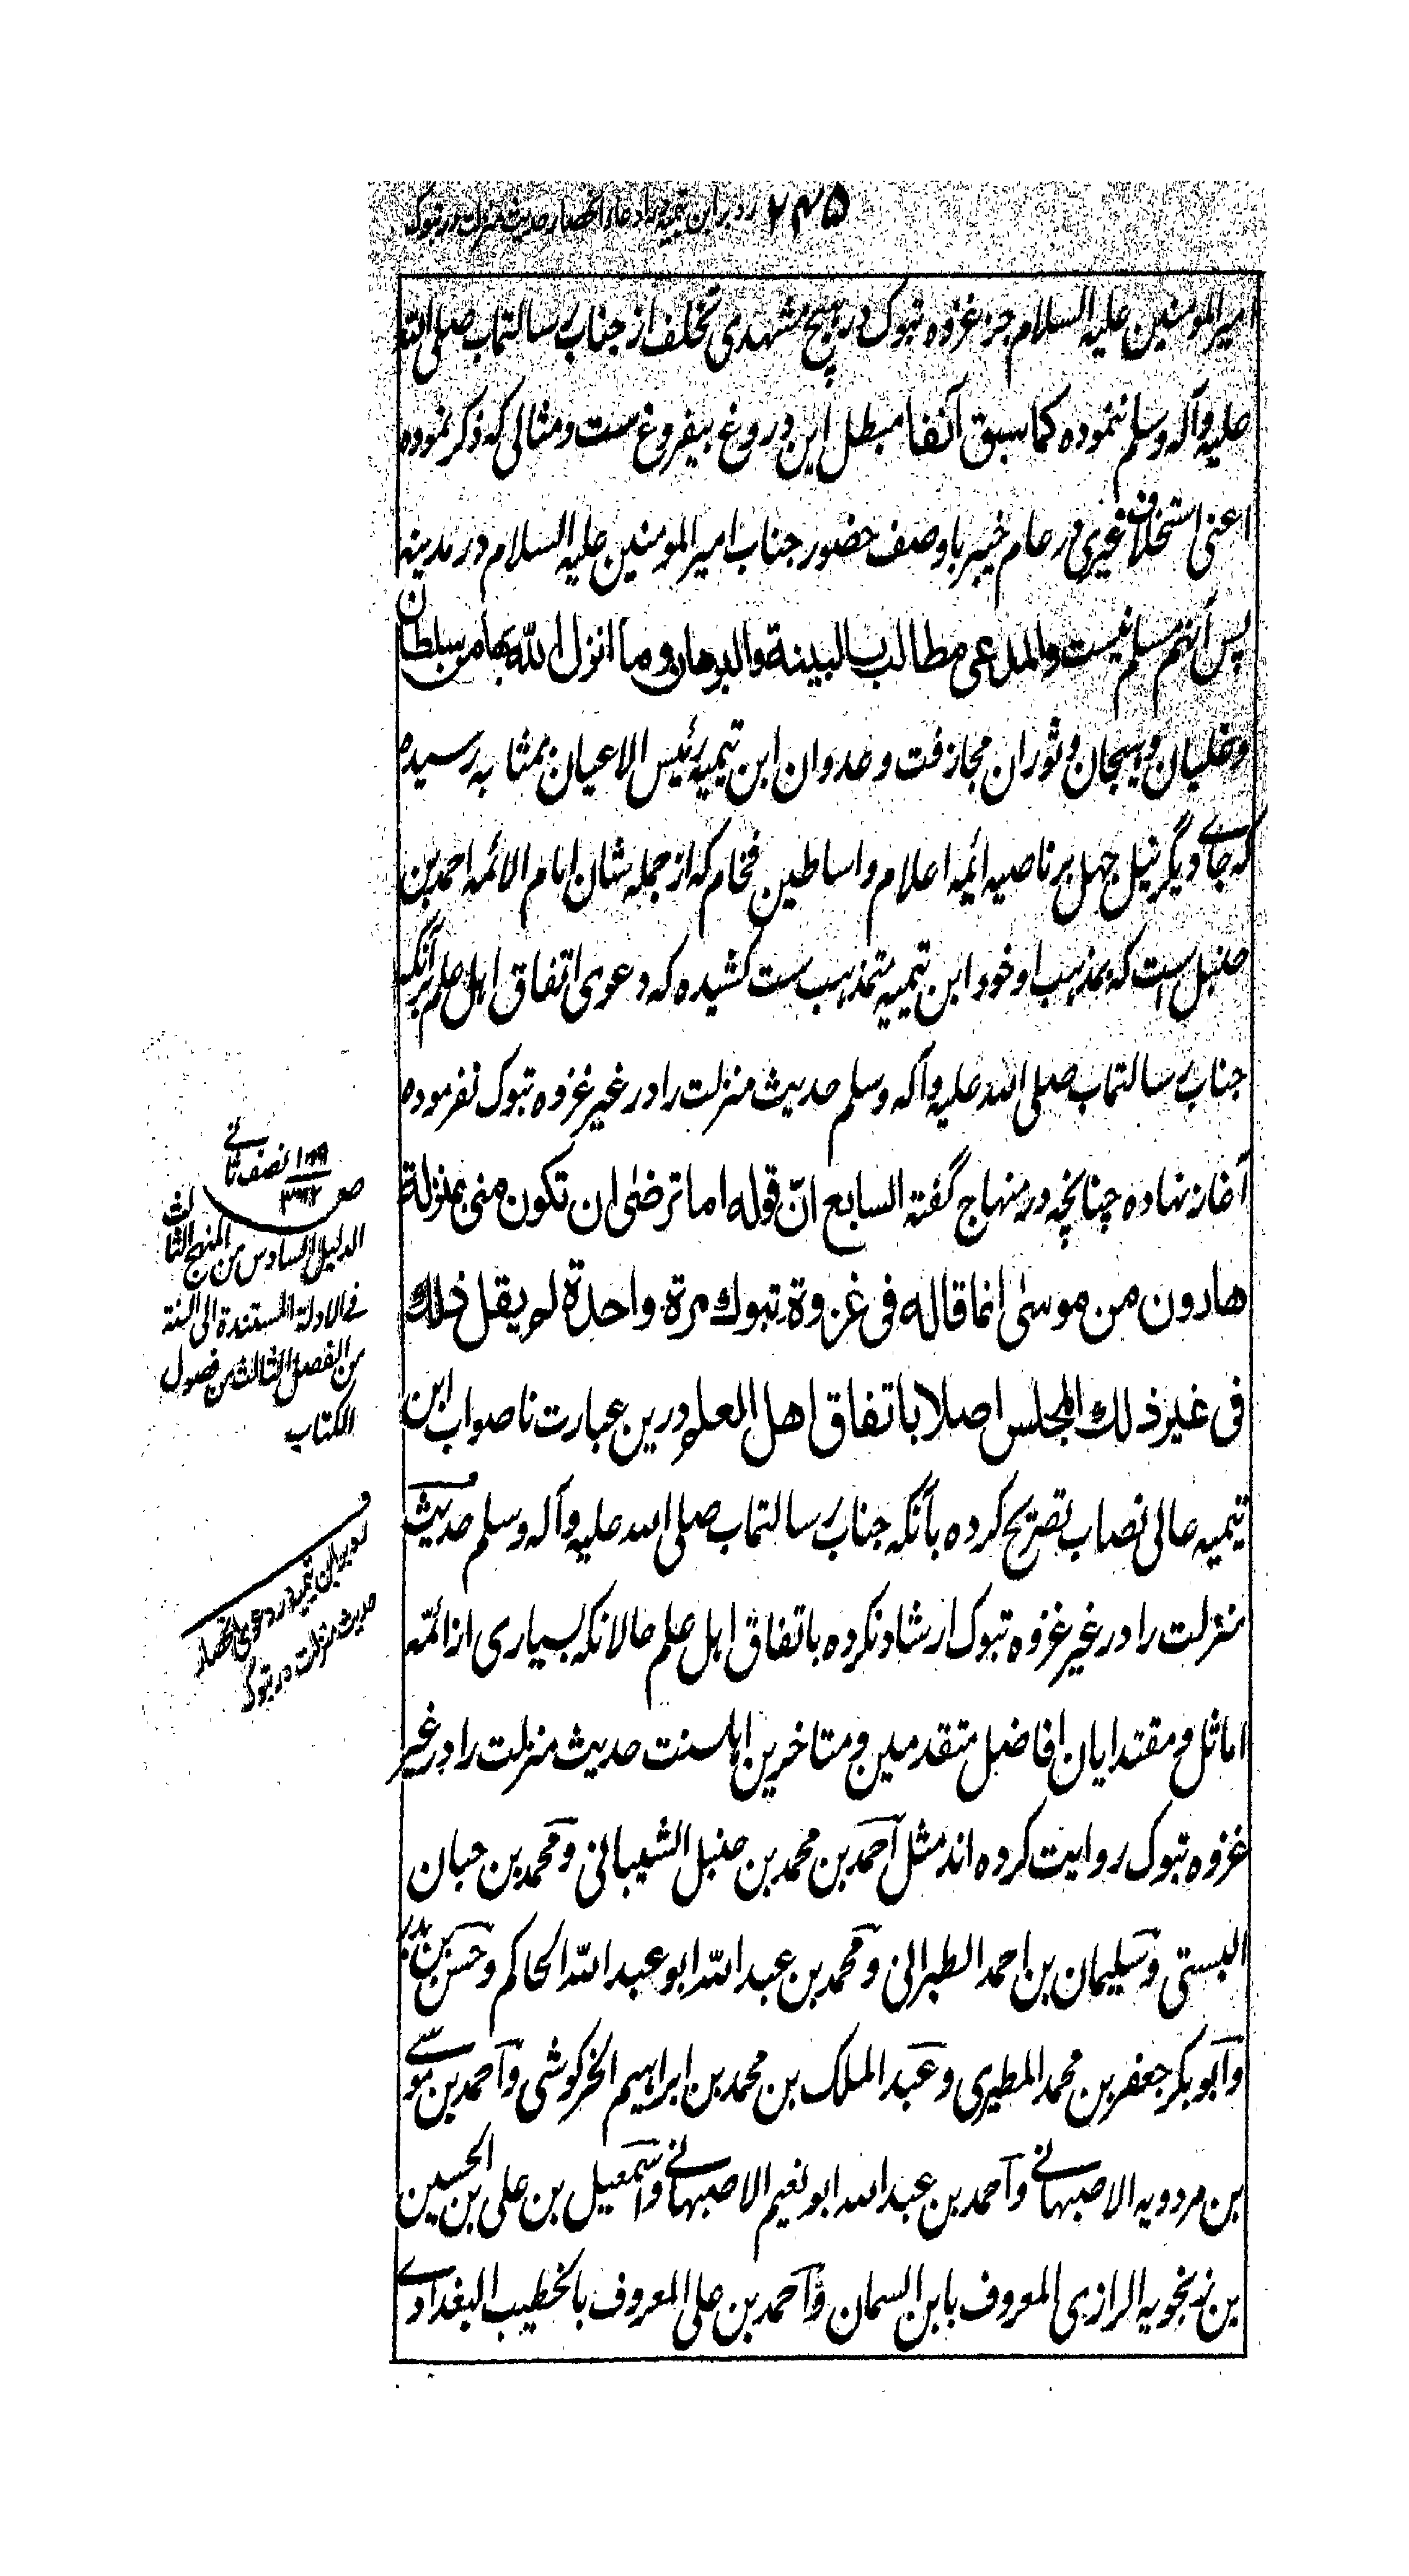 ۲۴۵ رد بر ابن تیمیه در ادعاء انحصار حدیث منزلت در تبوک
امیر المومنین علیه السلام جز غزوه تبوک در هیچ مشهدی تخلف از جناب رسالتماب صلی الله
علیه و آله وسلم ننموده کما سبق آنفا مبطل این دروغ بیفروغ ست و مثالی که ذکر نموده
اعنی استخلاف غیری در عام خیبر باوصف حضور جناب امیر المومنین علیه السلام در مدینه
پس آنهم مسلم نیست والمدعی مطالب بالبینة والبرهان وما انزل الله بها من سلطان
و غلیان و هیجان و ثوران مجازفت و عدوان ابن تیمیه رئیس الاعیان بمثابه رسیده
که جاے دیگر نیل جهل بر ناصیه ائمه اعلام و اساطین فخام که از جمله شان امام الائمه احمد بن
حنبل است که بمذهب او خود ابن تیمیه متمذهب ست کشیده که دعوی اتفاق اهل علم بر آنکه
جناب رسالتماب صلی الله علیه وآله وسلم حدیث منزلت را در غیر غزوه تبوک نفرموده
آغاز نهاده چنانچه در منهاج گفته السابع انّ قوله اما ترضى ان تكون منى بمنزلة
هارون من موسى انما قاله فى غزوة تبوك مرة واحدة لم يقل ذلك
فى غير ذلك المجلس اصلا باتفاق اهل العلم درین عبارت ناصواب ابن
تیمیه عالی نصاب تصریح کرده بآنکه جناب رسالتماب صلی الله علیه وآله وسلم حدیث
منزلت را در غیر غزوه تبوک ارشاد نکرده باتفاق اهل علم حالانکه بسیاری از ائمّه
اماثل و مقتدایان افاضل متقدمین و متاخرین اهلسنت حدیث منزلت را در غیر
غزوه تبوک روایت کرده اند مثل احمد بن محمد بن حنبل الشیبانی و محمد بن حبان
البستی و سلیمان بن احمد الطبرانی و محمد بن عبد الله ابو عبد الله الحاکم و حسن بن بدر
و ابو بکر جعفر بن محمد المطیری و عبد الملک بن محمد بن ابراهیم الخرکوشی و احمد بن موسے
بن مردویه الاصبهانے و احمد بن عبد الله ابو نعیم الاصبهانے و اسمعیل بن علی بن الحسین
بن زنجویه الرازی المعروف بابن السمان و احمد بن علی المعروف بالخطیب البغدادے
نصف ثانے
صـ
الدلیل السادس من المنهج الثالث
فی الادلة المستندة الی السنة
من الفصل الثالث من فصول
الکتاب
ف
رد بر ابن تیمیه در دعوی انحصار
حدیث منزلت در تبوک